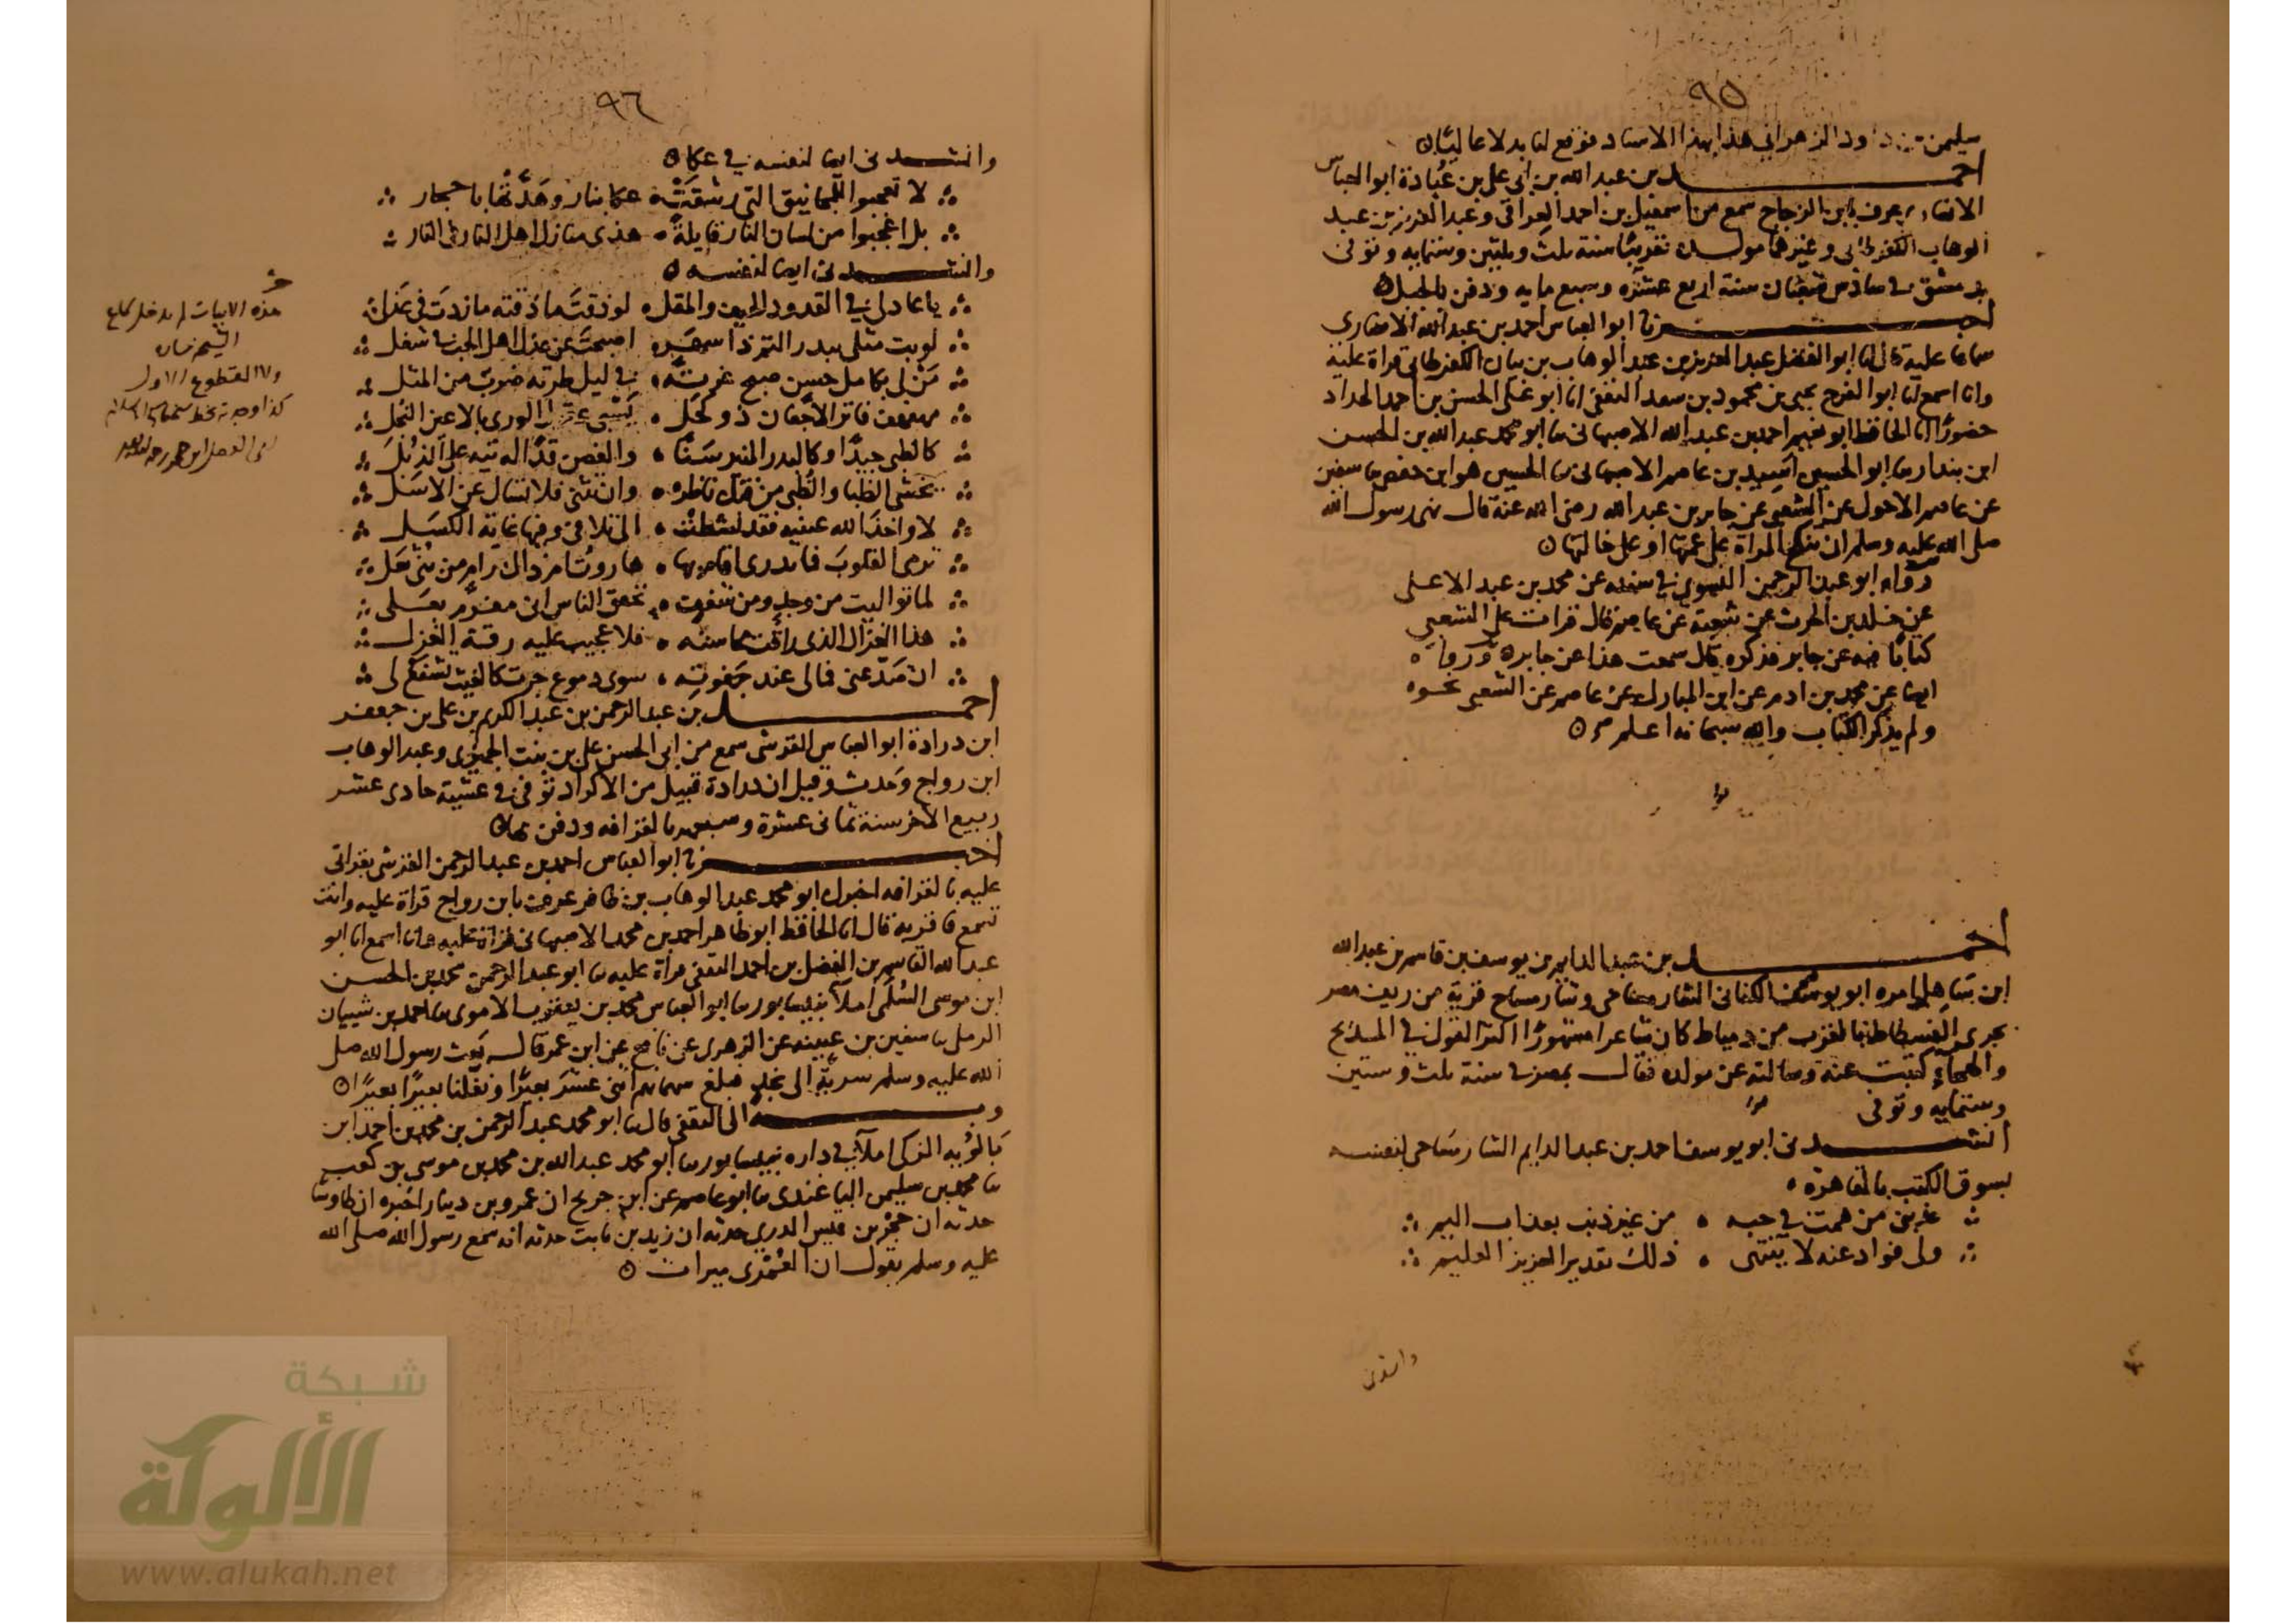 ٩٥
سليمن بن داود الزهراني هذا بهذا الاسناد فوقع لنا بدلا عاليا
احمد بن عبد الله بن ابي علي بن عبادة ابو العباس
الانصاري يعرف بابن الزجاج سمع من اسمعيل بن احمد العراقي وعبد العزيز بن عبد
الوهاب الكفرطابي وغيرهما مولده تقريبا سنة ثلث وثلثين وستمايه وتوفى
بدمشق في سادس شعبان سنة اربع عشرة وسبع مايه ودفن بالجبل
اخبرنا ابو العباس احمد بن عبد الله الانصاري
سماعا عليه قال انا ابو الفضل عبد العزيز بن عبد الوهاب بن بيان الكفرطابي قراة عليه
وانا اسمع انا ابو الفرج يحيى بن محمود بن سعد الثقفي انا ابو علي الحسن بن احمد الحداد
حضورا انا الحافظ ابو نعيم احمد بن عبد الله الاصبهاني ثنا ابو محمد عبد الله بن الحسن
ابن بندار ثنا ابو الحسين اسيد بن عاصم الاصبهاني ثنا الحسين هو ابن حفص ثنا سفين
عن عاصم الاحول عن الشعبي عن جابر بن عبد الله رضى الله عنه قال نهى رسول الله
صلى الله عليه وسلم ان تنكح المراة على عمتها او على خالتها
رواه ابو عبد الرحمن النسوي في سننه عن محمد بن عبد الاعلى
عن خلد بن الحرث عن شعبة عن عاصم قال قرات على الشعبي
كتابا فيه عن جابر فذكره قال سمعت هذا عن جابر ورواه
ايضا عن محمد بن ادم عن ابن المبارك عن عاصم عن الشعبي نحوه
ولم يذكر الكتاب والله سبحانه اعلم
احمد بن عبد الدايم بن يوسف بن قاسم بن عبد الله
ابن عبد الخالق بن ابو يوسف الكناني الشارمساحي وشارمساح قرية من ريف مصر
بحرى الفسطاط بالقرب من دمياط كان شاعرا مشهورا اكثر القول في المديح
والهجاء كتبت عنه وسالته عن مولده فقال بمصر في سنة ثلث وستين
وستمايه وتوفى
انشدنى ابو يوسف احمد بن عبد الدايم الشارمساحى لنفسه
بسوق الكتب بالقاهرة
عذبنى من همت في حبه من غير ذنب بعذاب اليم
ولى فواد عنه لا ينتهى ذلك تقدير العزيز العليم
وانشدنى
٩٦
وانشدنى ايضا لنفسه في عكا
لا تعجبوا للمجانيق التى رشقت عكا بنار وهدتها باحجار
بل اعجبوا من لسان النار قايلة هذى منازل اهل النار في النار
وانشدنى ايضا لنفسه
يا عاذلى في القدود الهيف والمقل لو ذقت ما ذقته ما زدت في عذلى
لو بت مثلى ببدر التم ذا سهر اصبحت عن عذل اهل الحب في شغل
من لى بكامل حسن صبح غرته في ليل طرته ضرب من المثل
مهفهف فاتر الاجفان ذو كحل يسبي الورى بالاعين النجل
كالظبى جيدا وكالبدر المنير سنا والغصن قدا له تيه على الذبل
تخشى الظبا والظبى من فتك ناظره وان تثنى فلا تسال عن الاسل
لا واخذ الله عينيه فقد نشطت الى تلافى وفيها غاية الكسل
ترمى القلوب فما تدرى اقام بها هاروت ام ذاك رام من بنى ثعل
لما توالت من وجد ومن شغف تحقق الناس انى مغرم بعلى
هذا الغزال الذى راقت محاسنه فلا عجيب عليه رقة الغزل
ان صد عنى فمالى عند جفوته سوى دموع جرت كالغيث تشفع لى
احمد بن عبد الرحمن بن عبد الكريم بن على بن جعفر
ابن درادة ابو العباس القرشى سمع من ابى الحسن على بن بنت الجميزى وعبد الوهاب
ابن رواج وحدث وقيل ان درادة قبيل من الاكراد توفى في عشية حادى عشر
ربيع الاخر سنة ثمانى عشرة وسبعمايه بالقرافه ودفن بها
اخبرنا ابو العباس احمد بن عبد الرحمن القرشى بقراتى
عليه بالقرافه اخبرك ابو محمد عبد الوهاب بن ظافر عرف بابن رواج قراة عليه وانت
تسمع فاقر به قال انا الحافظ ابو طاهر احمد بن محمد الاصبهانى قراة عليه وانا اسمع انا ابو
عبد الله القاسم بن الفضل بن احمد الثقفى قراة عليه ثنا ابو عبد الرحمن محمد بن الحسن
ابن موسى السلمى املا بنيسابور ثنا ابو العباس محمد بن يعقوب الاموى ثنا احمد بن شيبان
الرملى ثنا سفين بن عيينه عن الزهرى عن نافع عن ابن عمر قال بعث رسول الله صلى
الله عليه وسلم سرية الى نجد فبلغ سهمانهم اثنى عشر بعيرا ونفلنا بعيرا بعيرا
وبه الى الثقفى قال ثنا ابو محمد عبد الرحمن بن محمد بن احمد ابن
بالويه المزكى املا في داره بنيسابور ثنا ابو محمد عبد الله بن محمد بن موسى بن كعب
ثنا محمد بن سليمن الباغندى ثنا ابو عاصم عن ابن جريج ان عمرو بن دينار اخبره ان طاوسا
حدثه ان حجر بن قيس المدرى حدثه ان زيد بن ثابت حدثه انه سمع رسول الله صلى الله
عليه وسلم يقول ان العمرى ميراث
هذه الابيات لم تدخل
ولا المقطوع الاول
كذا وجد بخط
شبكة
الألوكة
www.alukah.net